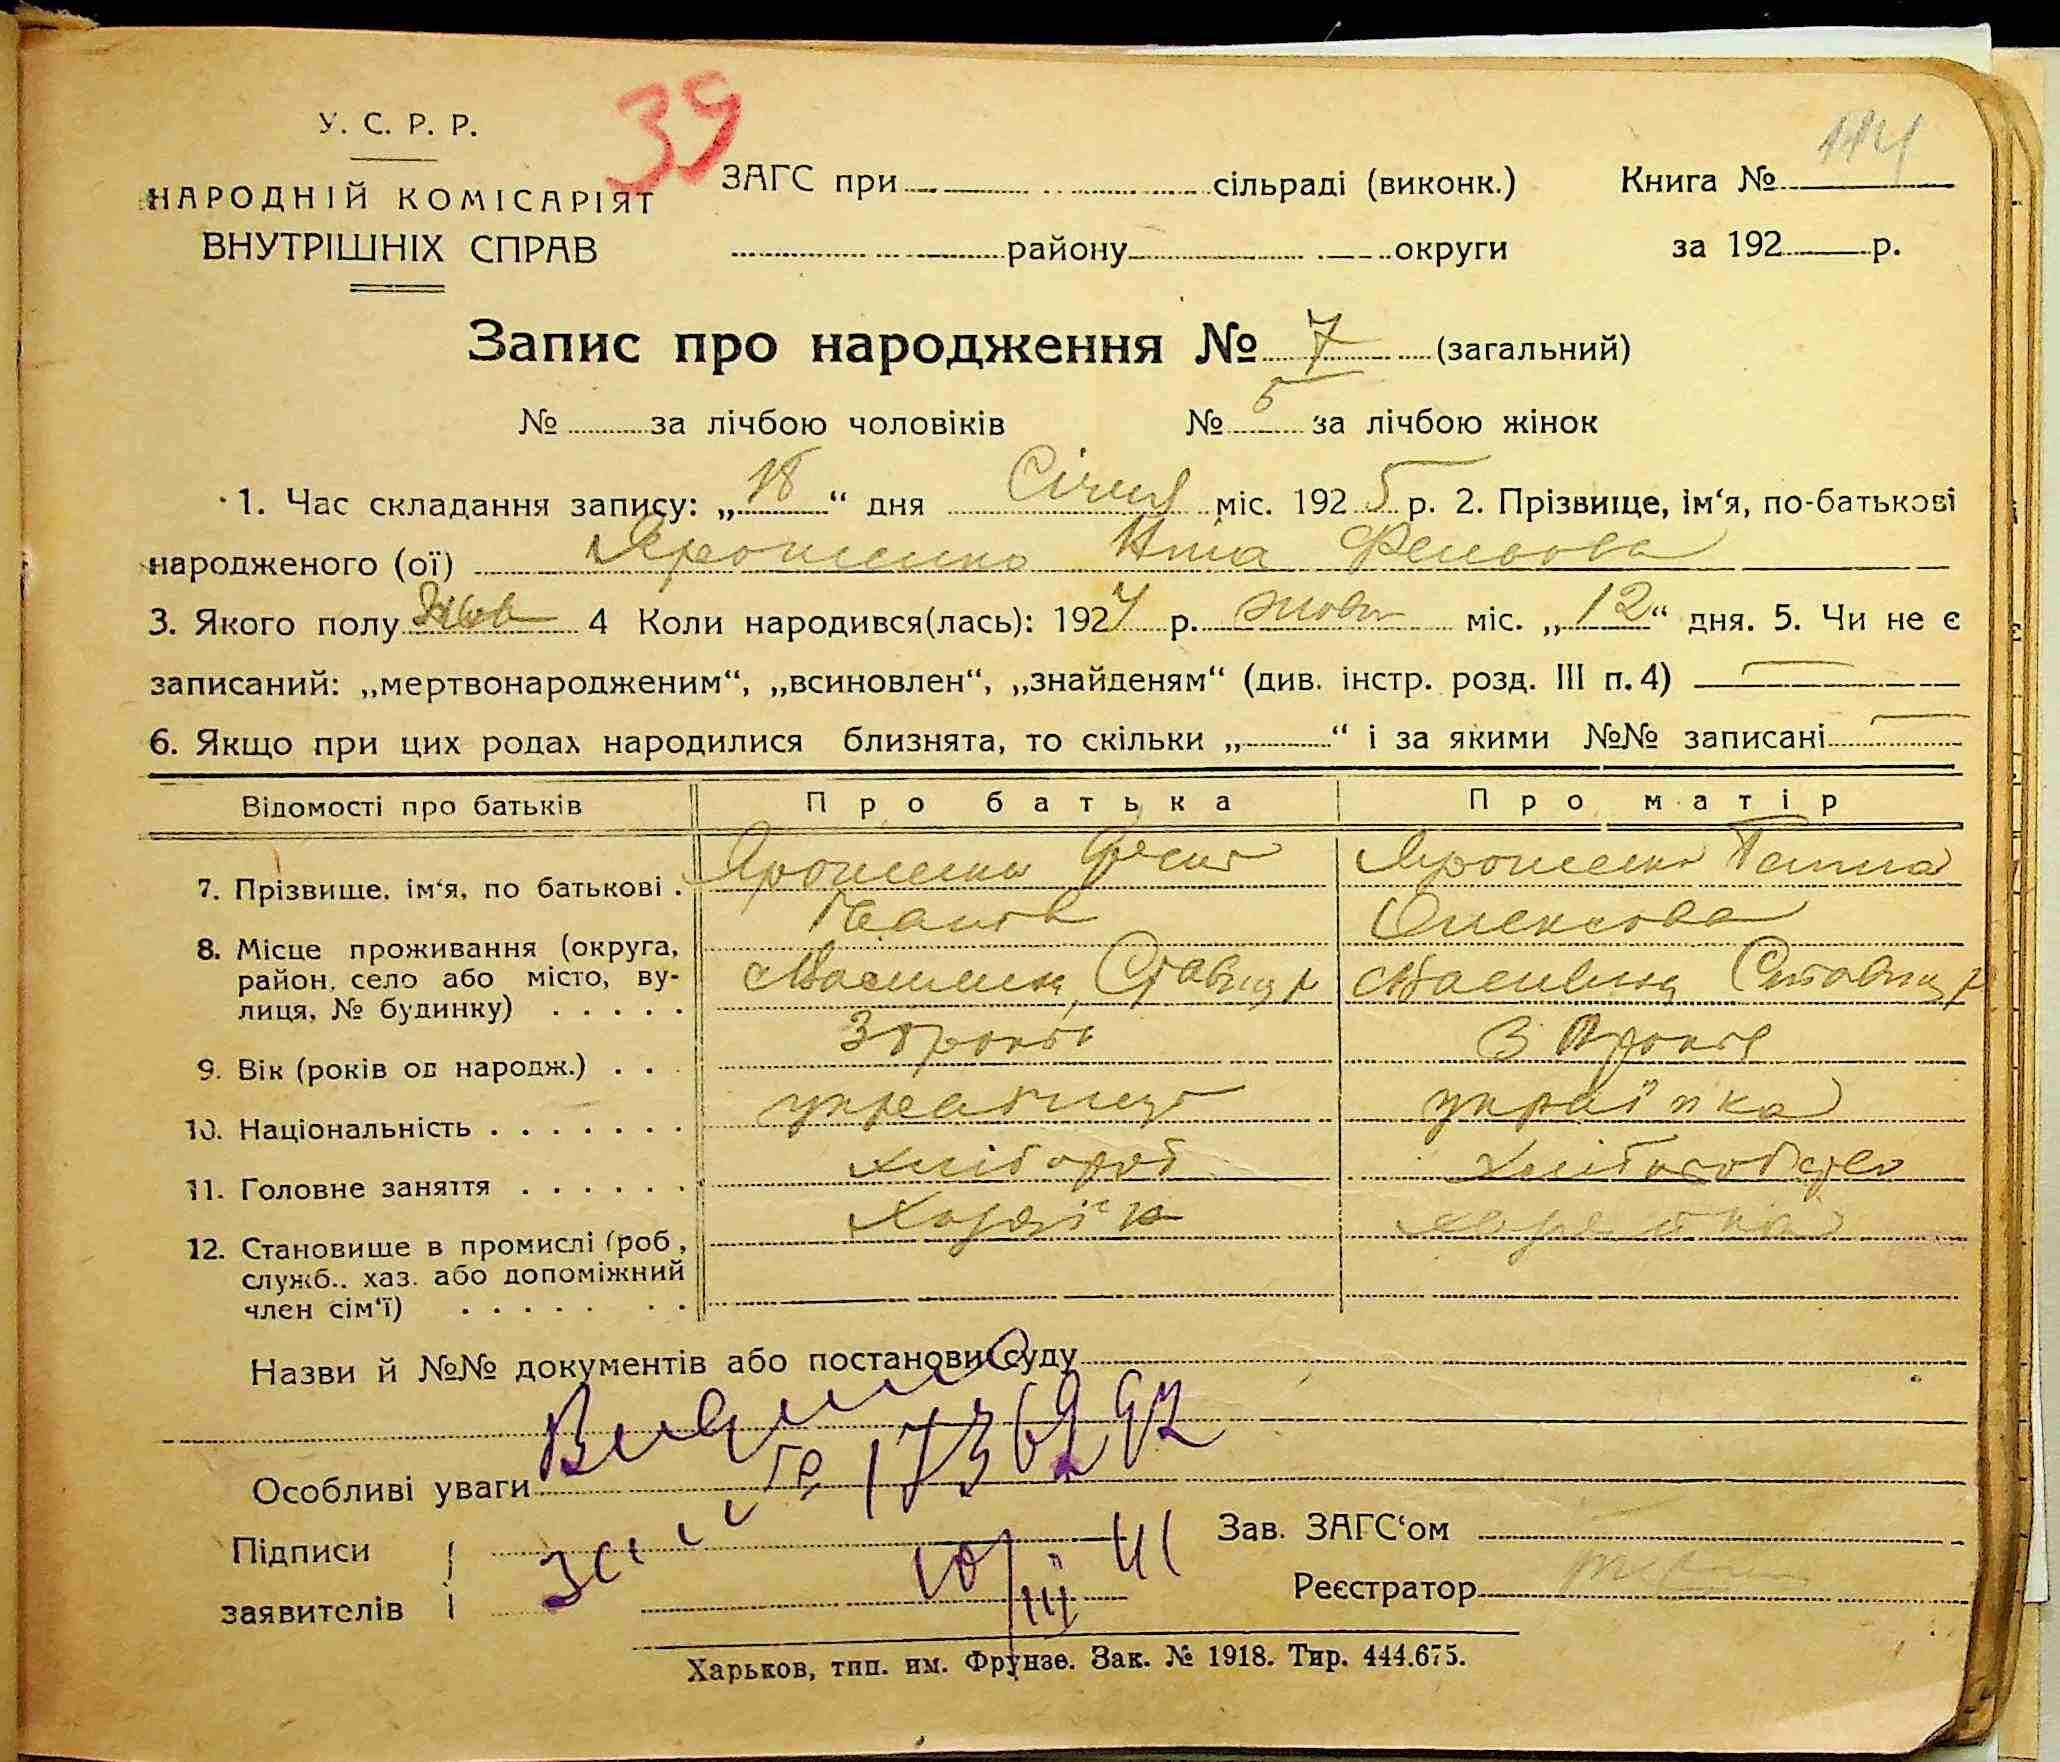 39
114
У. С. Р. Р.
НАРОДНІЙ КОМІСАРІЯТ
ВНУТРІШНІХ СПРАВ
ЗАГС при сільраді (виконк.) Книга №
району округи за 192 р.
Запис про народження № 7 (загальний)
№ за лічбою чоловіків № 5 за лічбою жінок
1. Час складання запису: „18“ дня Січня міс. 1925 р. 2. Прізвище, ім‘я, по-батькові
народженого (ої) Ярошенко
3. Якого полу 4 Коли народився(лась): 1924 р. жовт міс. „12“ дня. 5. Чи не є
записаний: „мертвонародженим“, „всиновлен“, „знайденям“ (див. інстр. розд. III п. 4)
6. Якщо при цих родах народилися близнята, то скільки „ “ і за якими №№ записані
Відомості про батьків Про батька Про матір
7. Прізвище, ім‘я, по батькові . Ярошенко Ярошенко Ганна
Іванов Олексова
8. Місце проживання (округа,
район, село або місто, ву-
лиця, № будинку) . . . . .
9. Вік (років од народж.) . .
10. Національність . . . . . . . українец українка
11. Головне заняття . . . . . . хлібороб
12. Становище в промислі (роб.,
служб., хаз. або допоміжний
член сім‘ї) . . . . . . .
Назви й №№ документів або постанови суду
Особливі уваги
173692
Підписи
заявителів
10/III 41
Зав. ЗАГС‘ом
Реєстратор
Харьков, тип. им. Фрунзе. Зак. № 1918. Тир. 444.675.